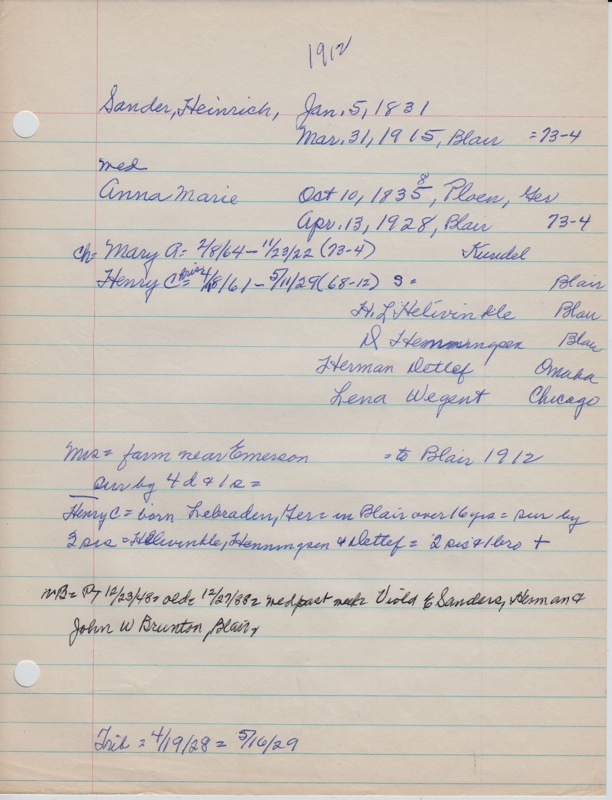 1912
Sander, Heinrich, Jan. 5, 1831
Mar. 31, 1915, Blair = 73-4
med
Anna Marie Oct 10, 1835 8, Ploen, Ger
Apr. 13, 1928, Blair 73-4
ch= Mary A= 2/8/64 - 11/23/22 (73-4) Kundel
Henry C= 8/61 - 5/11/29 (68-12) S = Blair
H. L Helivinkle Blair
D Hemmingsen Blair
Herman Detlef Omaha
Lena Wegent Chicago
Mrs = farm near Emerson = to Blair 1912
sur by 4 d & 1 s =
Henry C = born Lebraden, Ger = in Blair over 16 yrs = sur by
3 sis = Helivinkle, Henningsen & Detlef = 2 sis & 1 bro +
NB = 12/23/48 = old = 12/27/88 = med past week Viola E Sanders, Herman &
John W Brunton, Blair,
Trib = 4/19/28 = 5/16/29